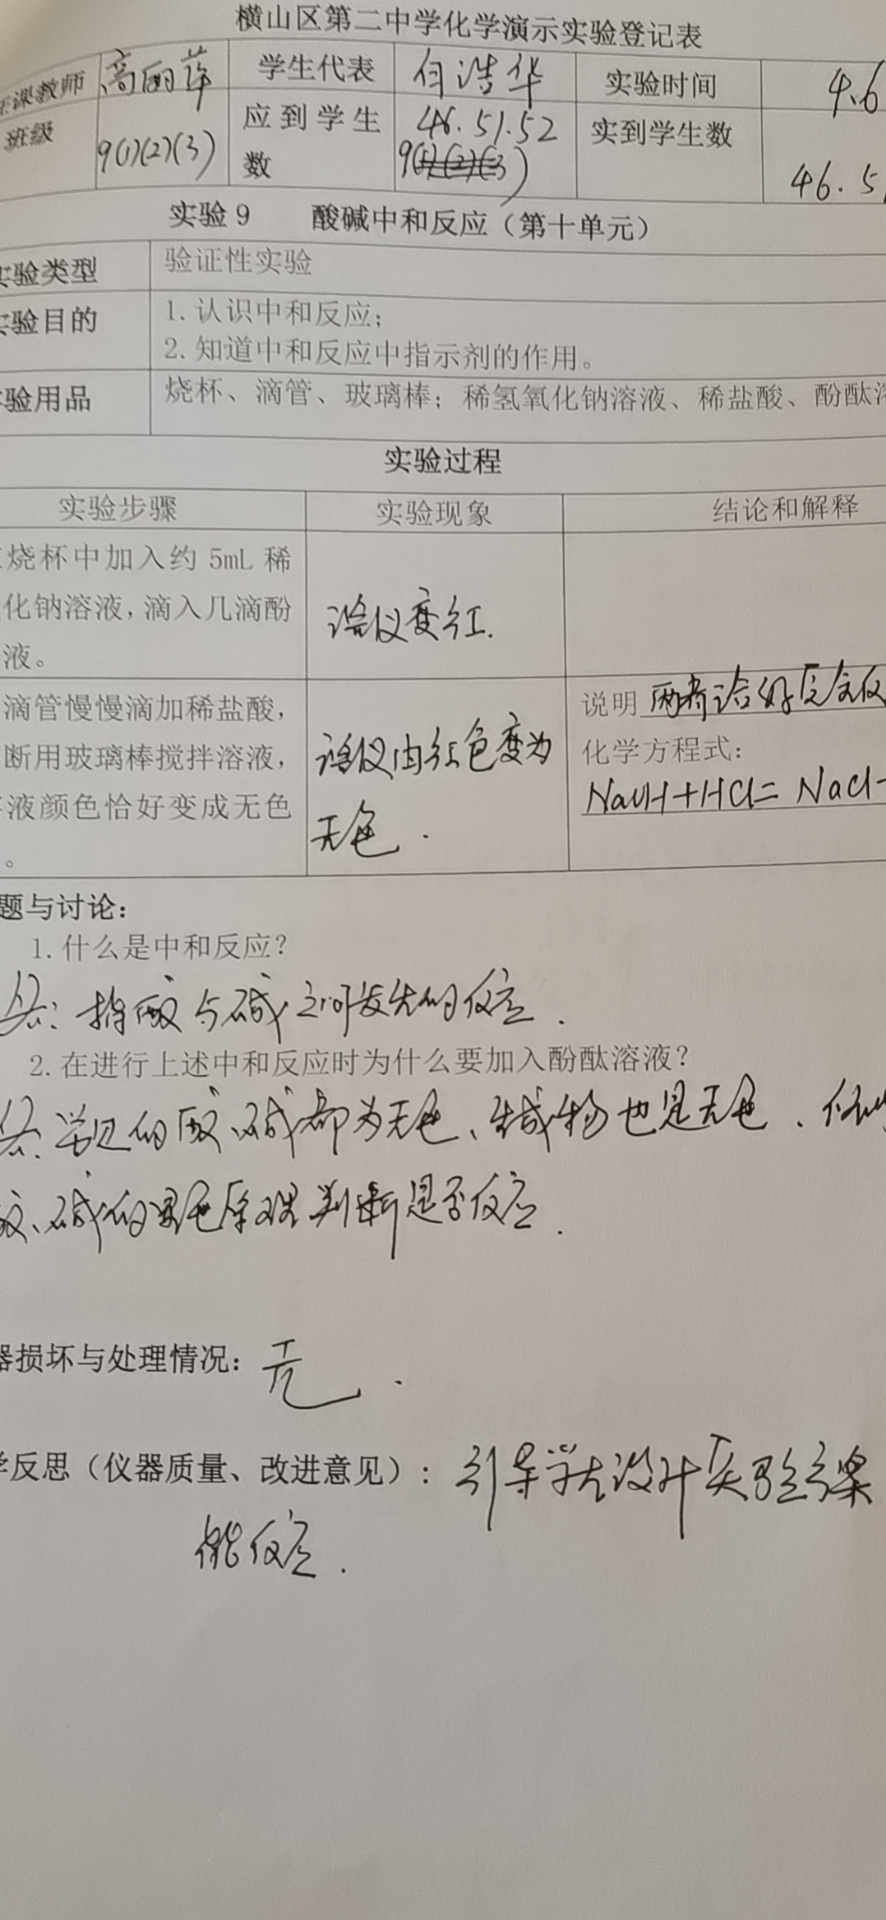 横山区第二中学化学演示实验登记表
课教师 高丽萍 学生代表 白浩华 实验时间 4.6
班级 9(1)(2)(3) 应到学生数 46.51.52 9(1)(2)(3) 实到学生数 46.5
实验9 酸碱中和反应（第十单元）
实验类型 验证性实验
实验目的 1.认识中和反应；
2.知道中和反应中指示剂的作用。
验用品 烧杯、滴管、玻璃棒；稀氢氧化钠溶液、稀盐酸、酚酞溶
实验过程
实验步骤 实验现象 结论和解释
烧杯中加入约 5mL 稀
化钠溶液，滴入几滴酚
液。
溶液变红.
滴管慢慢滴加稀盐酸，
断用玻璃棒搅拌溶液，
液颜色恰好变成无色
。
溶液由红色变为
无色.
说明 两者恰好完全反
化学方程式：
NaOH+HCl=NaCl+
题与讨论：
1.什么是中和反应？
答:指酸与碱之间发生的反应.
2.在进行上述中和反应时为什么要加入酚酞溶液？
答:常见的酸、碱都为无色、生成物也是无色.
酸、碱的显色原理判断是否反应.
器损坏与处理情况：无.
学反思（仪器质量、改进意见）：引导学生设计实验方案
能反应.